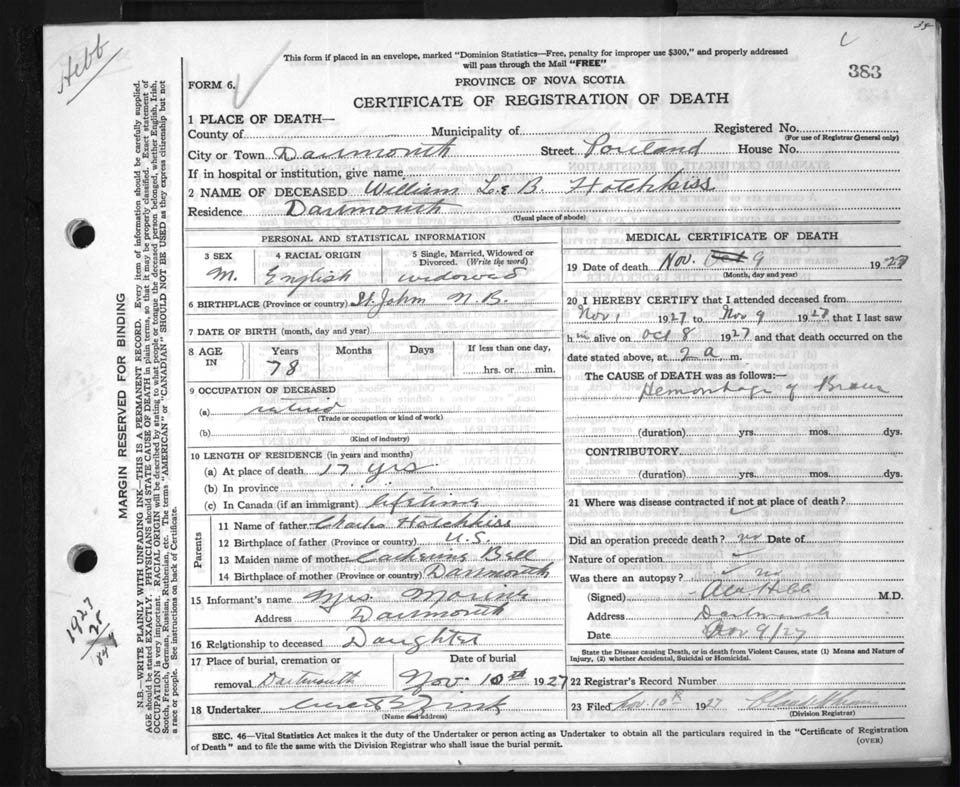 Hebb
This form if placed in an envelope, marked "Dominion Statistics—Free, penalty for improper use $300," and properly addressed
will pass through the Mail "FREE"
383
FORM 6.
PROVINCE OF NOVA SCOTIA
CERTIFICATE OF REGISTRATION OF DEATH
1 PLACE OF DEATH—
County of Municipality of Registered No.
(For use of Registrar General only)
City or Town Dartmouth Street Portland House No.
If in hospital or institution, give name
2 NAME OF DECEASED William Le B. Hotchkiss
Residence Dartmouth
(Usual place of abode)
PERSONAL AND STATISTICAL INFORMATION
3 SEX 4 RACIAL ORIGIN 5 Single, Married, Widowed or Divorced. (Write the word)
M. English widowed
6 BIRTHPLACE (Province or country) St. John N.B.
7 DATE OF BIRTH (month, day and year)
8 AGE IN Years Months Days If less than one day,
78 hrs. or min.
9 OCCUPATION OF DECEASED
(a) retired
(Trade or occupation or kind of work)
(b)
(Kind of industry)
10 LENGTH OF RESIDENCE (in years and months)
(a) At place of death 17 yrs
(b) In province
(c) In Canada (if an immigrant) lifetime
Parents
11 Name of father Charles Hotchkiss
12 Birthplace of father (Province or country) U.S.
13 Maiden name of mother Catherine Bell
14 Birthplace of mother (Province or country) Dartmouth
15 Informant's name Mrs.
Address Dartmouth
16 Relationship to deceased Daughter
17 Place of burial, cremation or removal Dartmouth Date of burial Nov. 10th 1927
18 Undertaker
(Name and address)
MEDICAL CERTIFICATE OF DEATH
19 Date of death Nov. Oct 9 1927
(Month, day and year)
20 I HEREBY CERTIFY that I attended deceased from
Nov 1 1927 to Nov 9 1927 that I last saw
him alive on Oct 8 1927 and that death occurred on the
date stated above, at 2 a m.
The CAUSE of DEATH was as follows:
Hemorrhage of Brain
(duration) yrs. mos. dys.
CONTRIBUTORY
(duration) yrs. mos. dys.
21 Where was disease contracted if not at place of death?
Did an operation precede death? no Date of
Nature of operation
Was there an autopsy? no
(Signed) Hebb M.D.
Address Dartmouth
Date Nov 9/27
State the Disease causing Death, or in death from Violent Causes, state (1) Means and Nature of
Injury, (2) whether Accidental, Suicidal or Homicidal.
22 Record Number
23 Filed Nov. 10th 1927
(Division Registrar)
SEC. 46—Vital Statistics Act makes it duty of the Undertaker or person acting as Undertaker to obtain all the particulars required in the "Certificate of Registration
of Death" and to file the same with the Division Registrar who shall issue the burial permit.
(OVER)
MARGIN RESERVED FOR BINDING
N.B.—WRITE PLAINLY WITH UNFADING INK—THIS IS A PERMANENT RECORD. Every item of information should be carefully supplied.
AGE should be stated EXACTLY. PHYSICIANS should STATE CAUSE OF DEATH in plain terms, so that it may be properly classified. Exact statement of
OCCUPATION is very important. RACIAL ORIGIN will be described by stating to what people or tongue the deceased person belonged, whether English, Irish,
Scotch, French, German, Russian, Ruthenian, etc. The terms "AMERICAN" or "CANADIAN" SHOULD NOT BE USED as they express citizenship but not
a race or people. See instructions on back of Certificate.
1927
78
1849